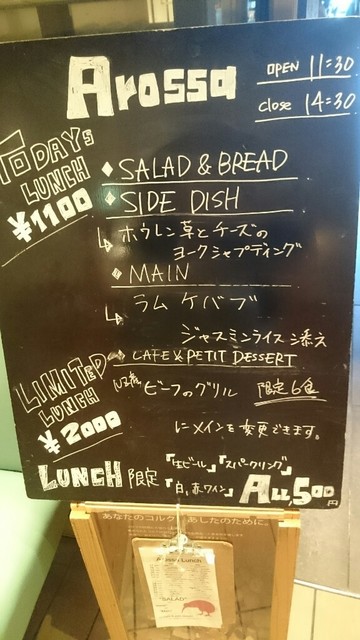 Arossa
OPEN 11:30
close 14:30
TODAYs
LUNCH
¥1100
SALAD & BREAD
SIDE DISH
ホウレン草とチーズの
ヨークシャプディング
MAIN
ラム ケバブ
ジャスミンライス添え
CAFE & PETIT DESSERT
LIMITED
LUNCH
¥2000
NZ産 ビーフのグリル 限定6食
にメインを変更できます。
LUNCH 限定 「生ビール」「スパークリング」
「白,赤ワイン」 ALL,500円
あなたのコルク あしたのために。
Lunch
"SALAD"